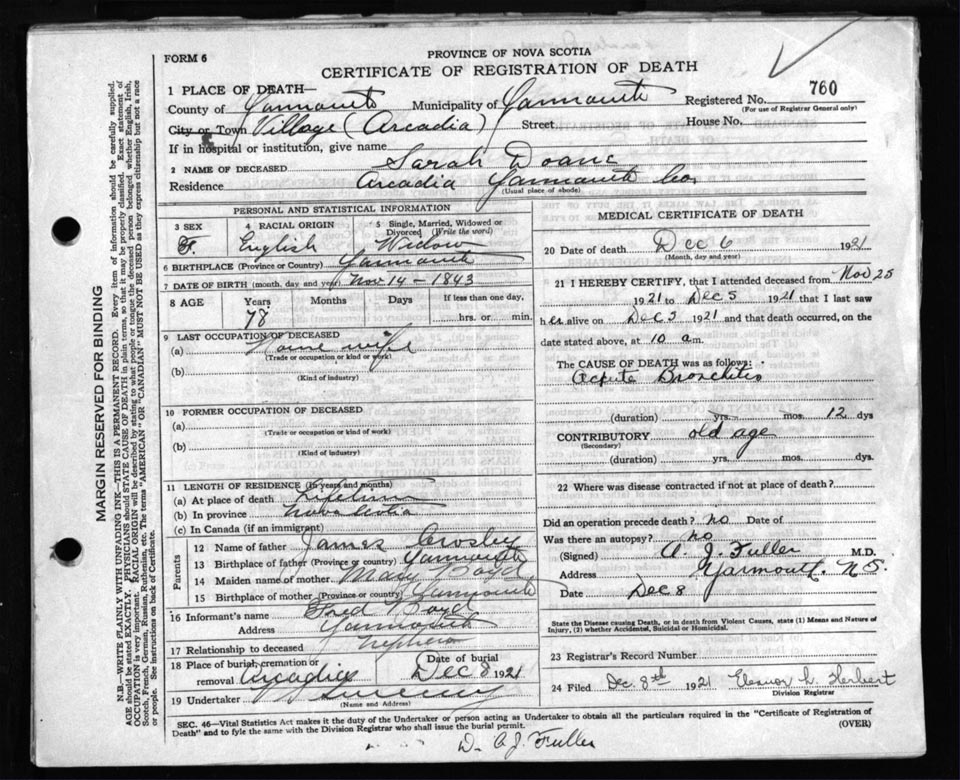 FORM 6
PROVINCE OF NOVA SCOTIA
CERTIFICATE OF REGISTRATION OF DEATH
760
1 PLACE OF DEATH—
Registered No.
(For use of Registrar General only)
County of Yarmouth Municipality of Yarmouth
City or Town Village (Arcadia) Street House No.
If in hospital or institution, give name
2 NAME OF DECEASED Sarah Doane
Residence Arcadia Yarmouth Co.
(Usual place of abode)
PERSONAL AND STATISTICAL INFORMATION
3 SEX 4 RACIAL ORIGIN 5 Single, Married, Widowed or Divorced (Write the word)
F. English Widow
6 BIRTHPLACE (Province or Country) Yarmouth
7 DATE OF BIRTH (month, day and year) Nov 14 - 1843
8 AGE Years Months Days If less than one day,
78 hrs. or min.
9 LAST OCCUPATION OF DECEASED
(a) House wife
(Trade or occupation or kind or work)
(b)
(Kind of industry)
10 FORMER OCCUPATION OF DECEASED
(a)
(Trade or occupation or kind of work)
(b)
(Kind of industry)
11 LENGTH OF RESIDENCE (in years and months)
(a) At place of death Lifetime
(b) In province Nova Scotia
(c) In Canada (if an immigrant)
Parents
12 Name of father James Crosby
13 Birthplace of father (Province or Country) Yarmouth
14 Maiden name of mother Mary Boyd
15 Birthplace of mother (Province or country) Yarmouth
16 Informant's name Fred Boyd
Address Yarmouth
17 Relationship to deceased Nephew
18 Place of burial, cremation or removal Arcadia Date of burial Dec 8 1921
19 Undertaker Sweeny
(Name and Address)
MEDICAL CERTIFICATE OF DEATH
20 Date of death Dec 6 1921
(Month, day and year)
21 I HEREBY CERTIFY, that I attended deceased from Nov 25
1921 to Dec 5 1921 that I last saw
her alive on Dec 5 1921 and that death occurred, on
date stated above, at 10 a.m.
The CAUSE OF DEATH was as follows:
Acute Bronchitis
(duration) yrs. mos. 12 dys
CONTRIBUTORY old age
(Secondary)
(duration) yrs. mos. dys.
22 Where was disease contracted if not at place of death?
Did an operation precede death? no Date of
Was there an autopsy? no
(Signed) A. J. Fuller M.D.
Address Yarmouth. N S.
Date Dec 8
State the Disease causing Death, or in death from Violent Causes, state (1) Means and Nature of
Injury, (2) whether Accidental, Suicidal or Homicidal.
23 Registrar's Record Number
24 Filed Dec 8th 1921 Eleanor L. Herbert
Division Registrar
SEC. 46—Vital Statistics Act makes it the duty of the Undertaker or person acting as Undertaker to obtain all the particulars required in the "Certificate of Registration of
Death" and to fyle the same with the Division Registrar who shall issue the burial permit. (OVER)
Dr. A. J. Fuller
MARGIN RESERVED FOR BINDING
N.B.—WRITE PLAINLY WITH UNFADING INK—THIS IS A PERMANENT RECORD. Every item of information should be carefully supplied.
AGE should be stated EXACTLY. PHYSICIANS should STATE CAUSE OF DEATH in plain terms, so that it may be properly classified. Exact statement of
OCCUPATION is very important. RACIAL ORIGIN will be described by stating to what people or tongue the deceased person belonged whether English, Irish,
Scotch, French, German, Russian, Ruthenian, etc. The terms "AMERICAN" OR "CANADIAN" MUST NOT BE USED as they express citizenship but not a race
or people. See instructions on back of Certificate.